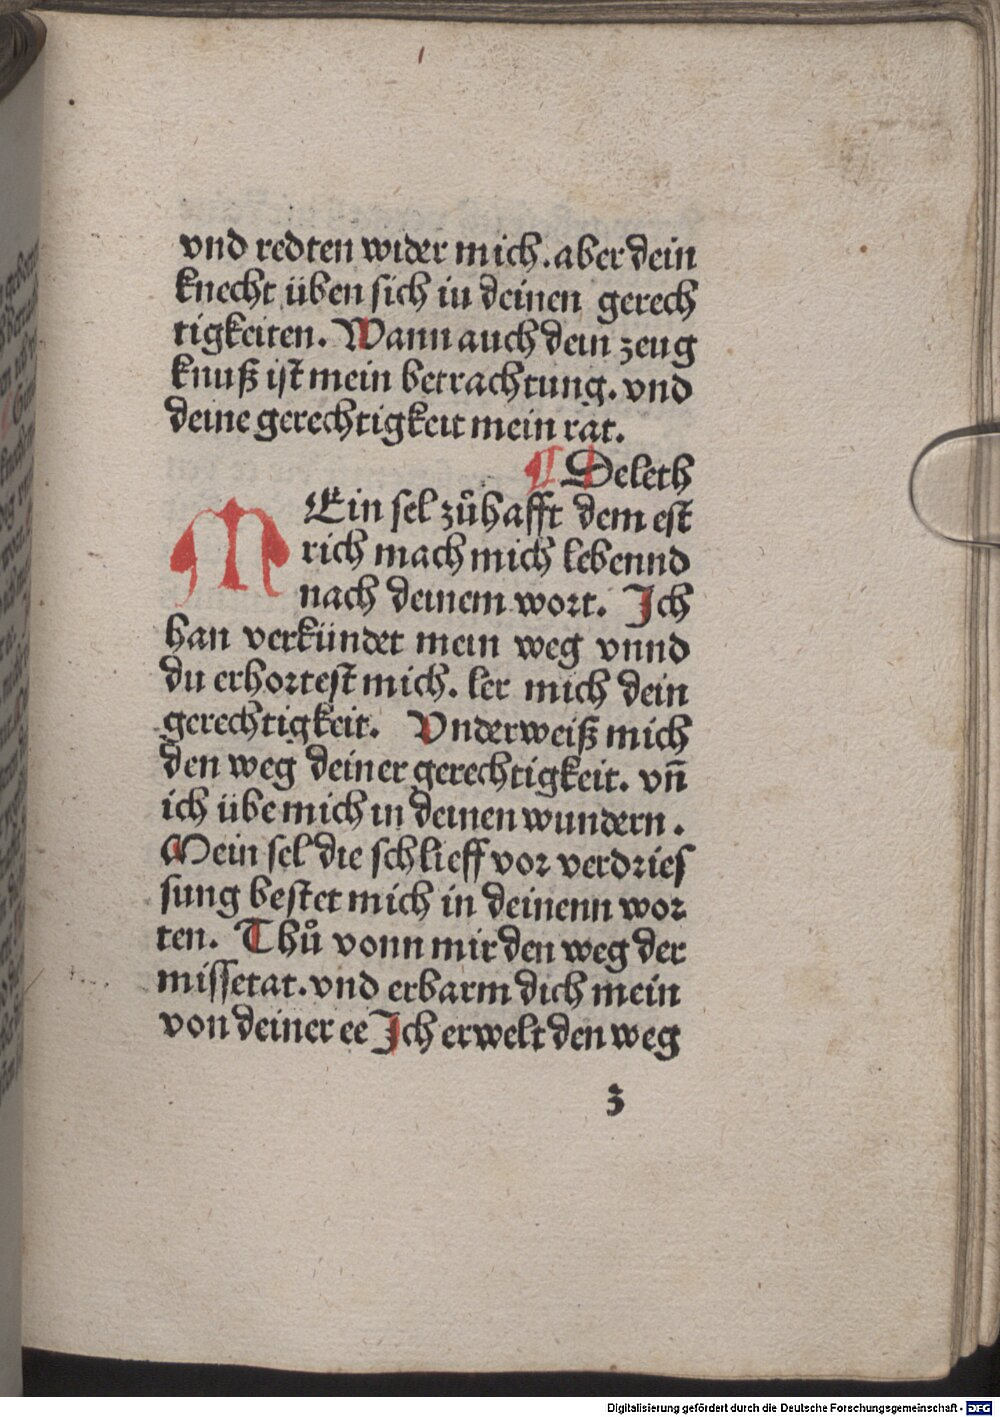 vnd redten wider mich. aber dein
knecht üben sich in deinen gerech
tigkeiten. Wann auch dein zeug
knuß ist mein betrachtung. vnd
deine gerechtigkeit mein rat.
¶ Deleth
MEin sel zůhafft dem est
rich mach mich lebennd
nach deinem wort. Ich
han verkündet mein weg vnnd
du erhortest mich. ler mich dein
gerechtigkeit. Vnderweiß mich
den weg deiner gerechtigkeit. vn̄
ich übe mich in deinen wundern.
Mein sel die schlieff vor verdries
sung bestet mich in deinenn wor
ten. Thů vonn mir den weg der
missetat. vnd erbarm dich mein
von deiner ee Ich erwelt den weg
z
Digitalisierung gefördert durch die Deutsche Forschungsgemeinschaft - DFG